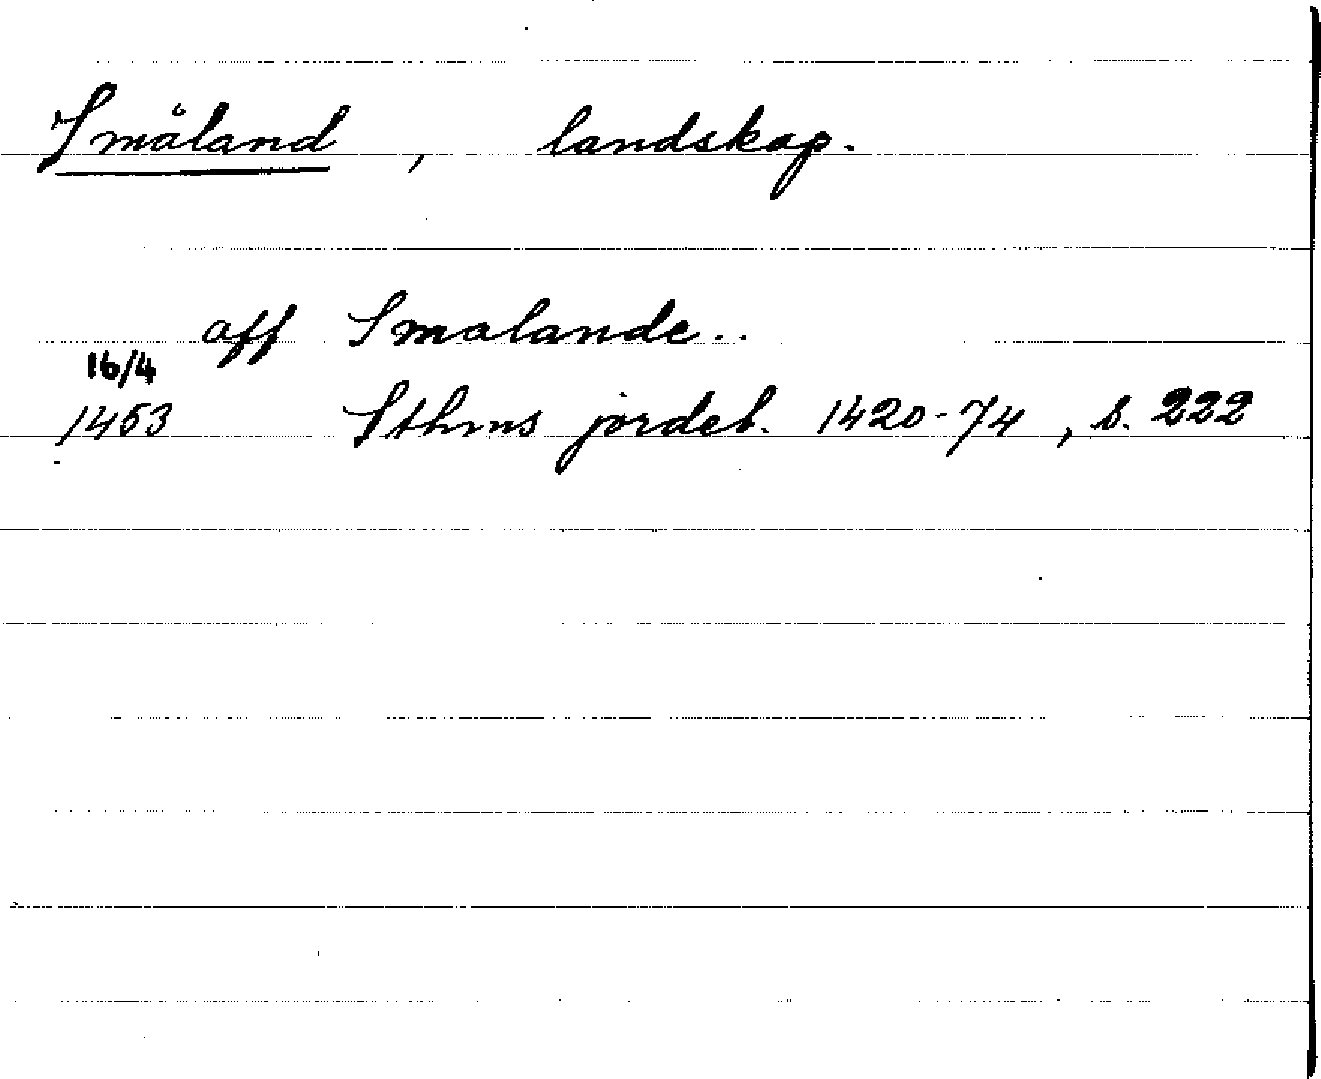 Småland , landskap.
aff Smalande..
16/4
1453 Sthms jordeb. 1420-74, s. 222